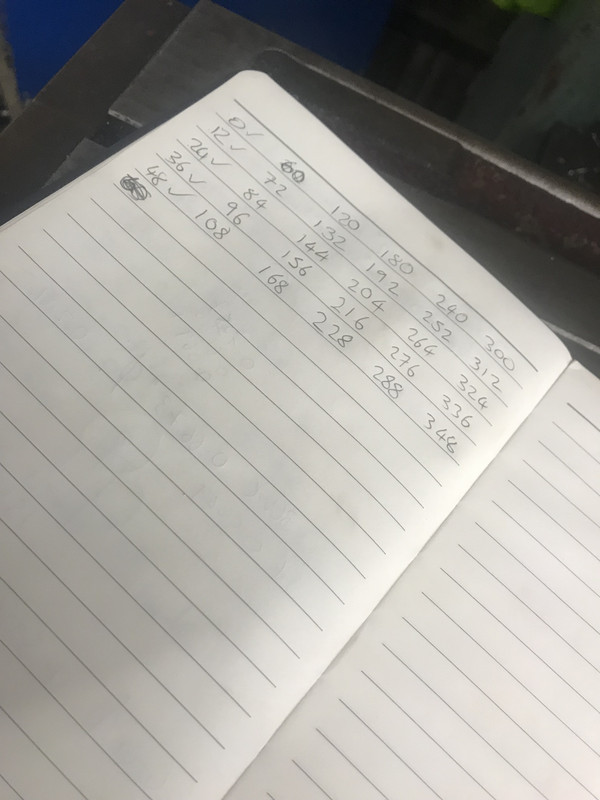 0✓ 60 120 180 240 300
12✓ 72 132 192 252 312
24✓ 84 144 204 264 324
36✓ 96 156 216 276 336
48✓ 108 168 228 288 348